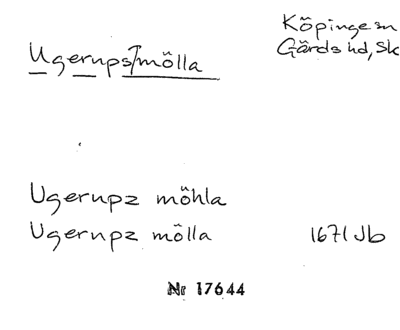 Ugerups↑mölla
Köpinge sn
Gärds hd, Sk
Ugerupz möhla
Ugerupz mölla 1671 Jb
Nr 17644